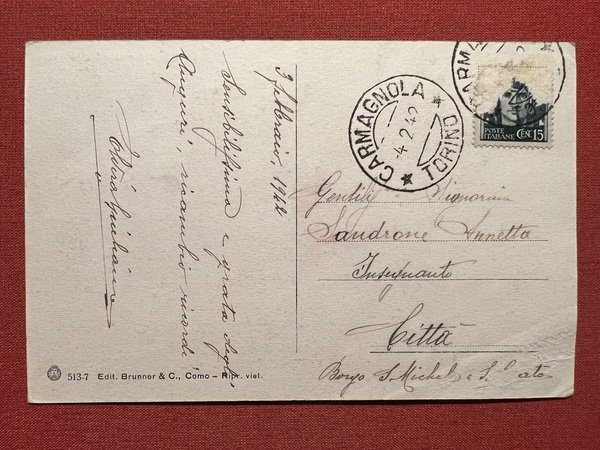 3 febbraio, 1942
Sensibilissima e grata degli
auguri, ricambio ricordi
CARMAGNOLA
4.2.42
TORINO
POSTE
ITALIANE
CENT 15
Gentil Signorina
Sandrone Annetta
Insegnante
Città
Borgo S. Michele e
513-7 Edit. Brunner & C., Como – Ripr. viet.